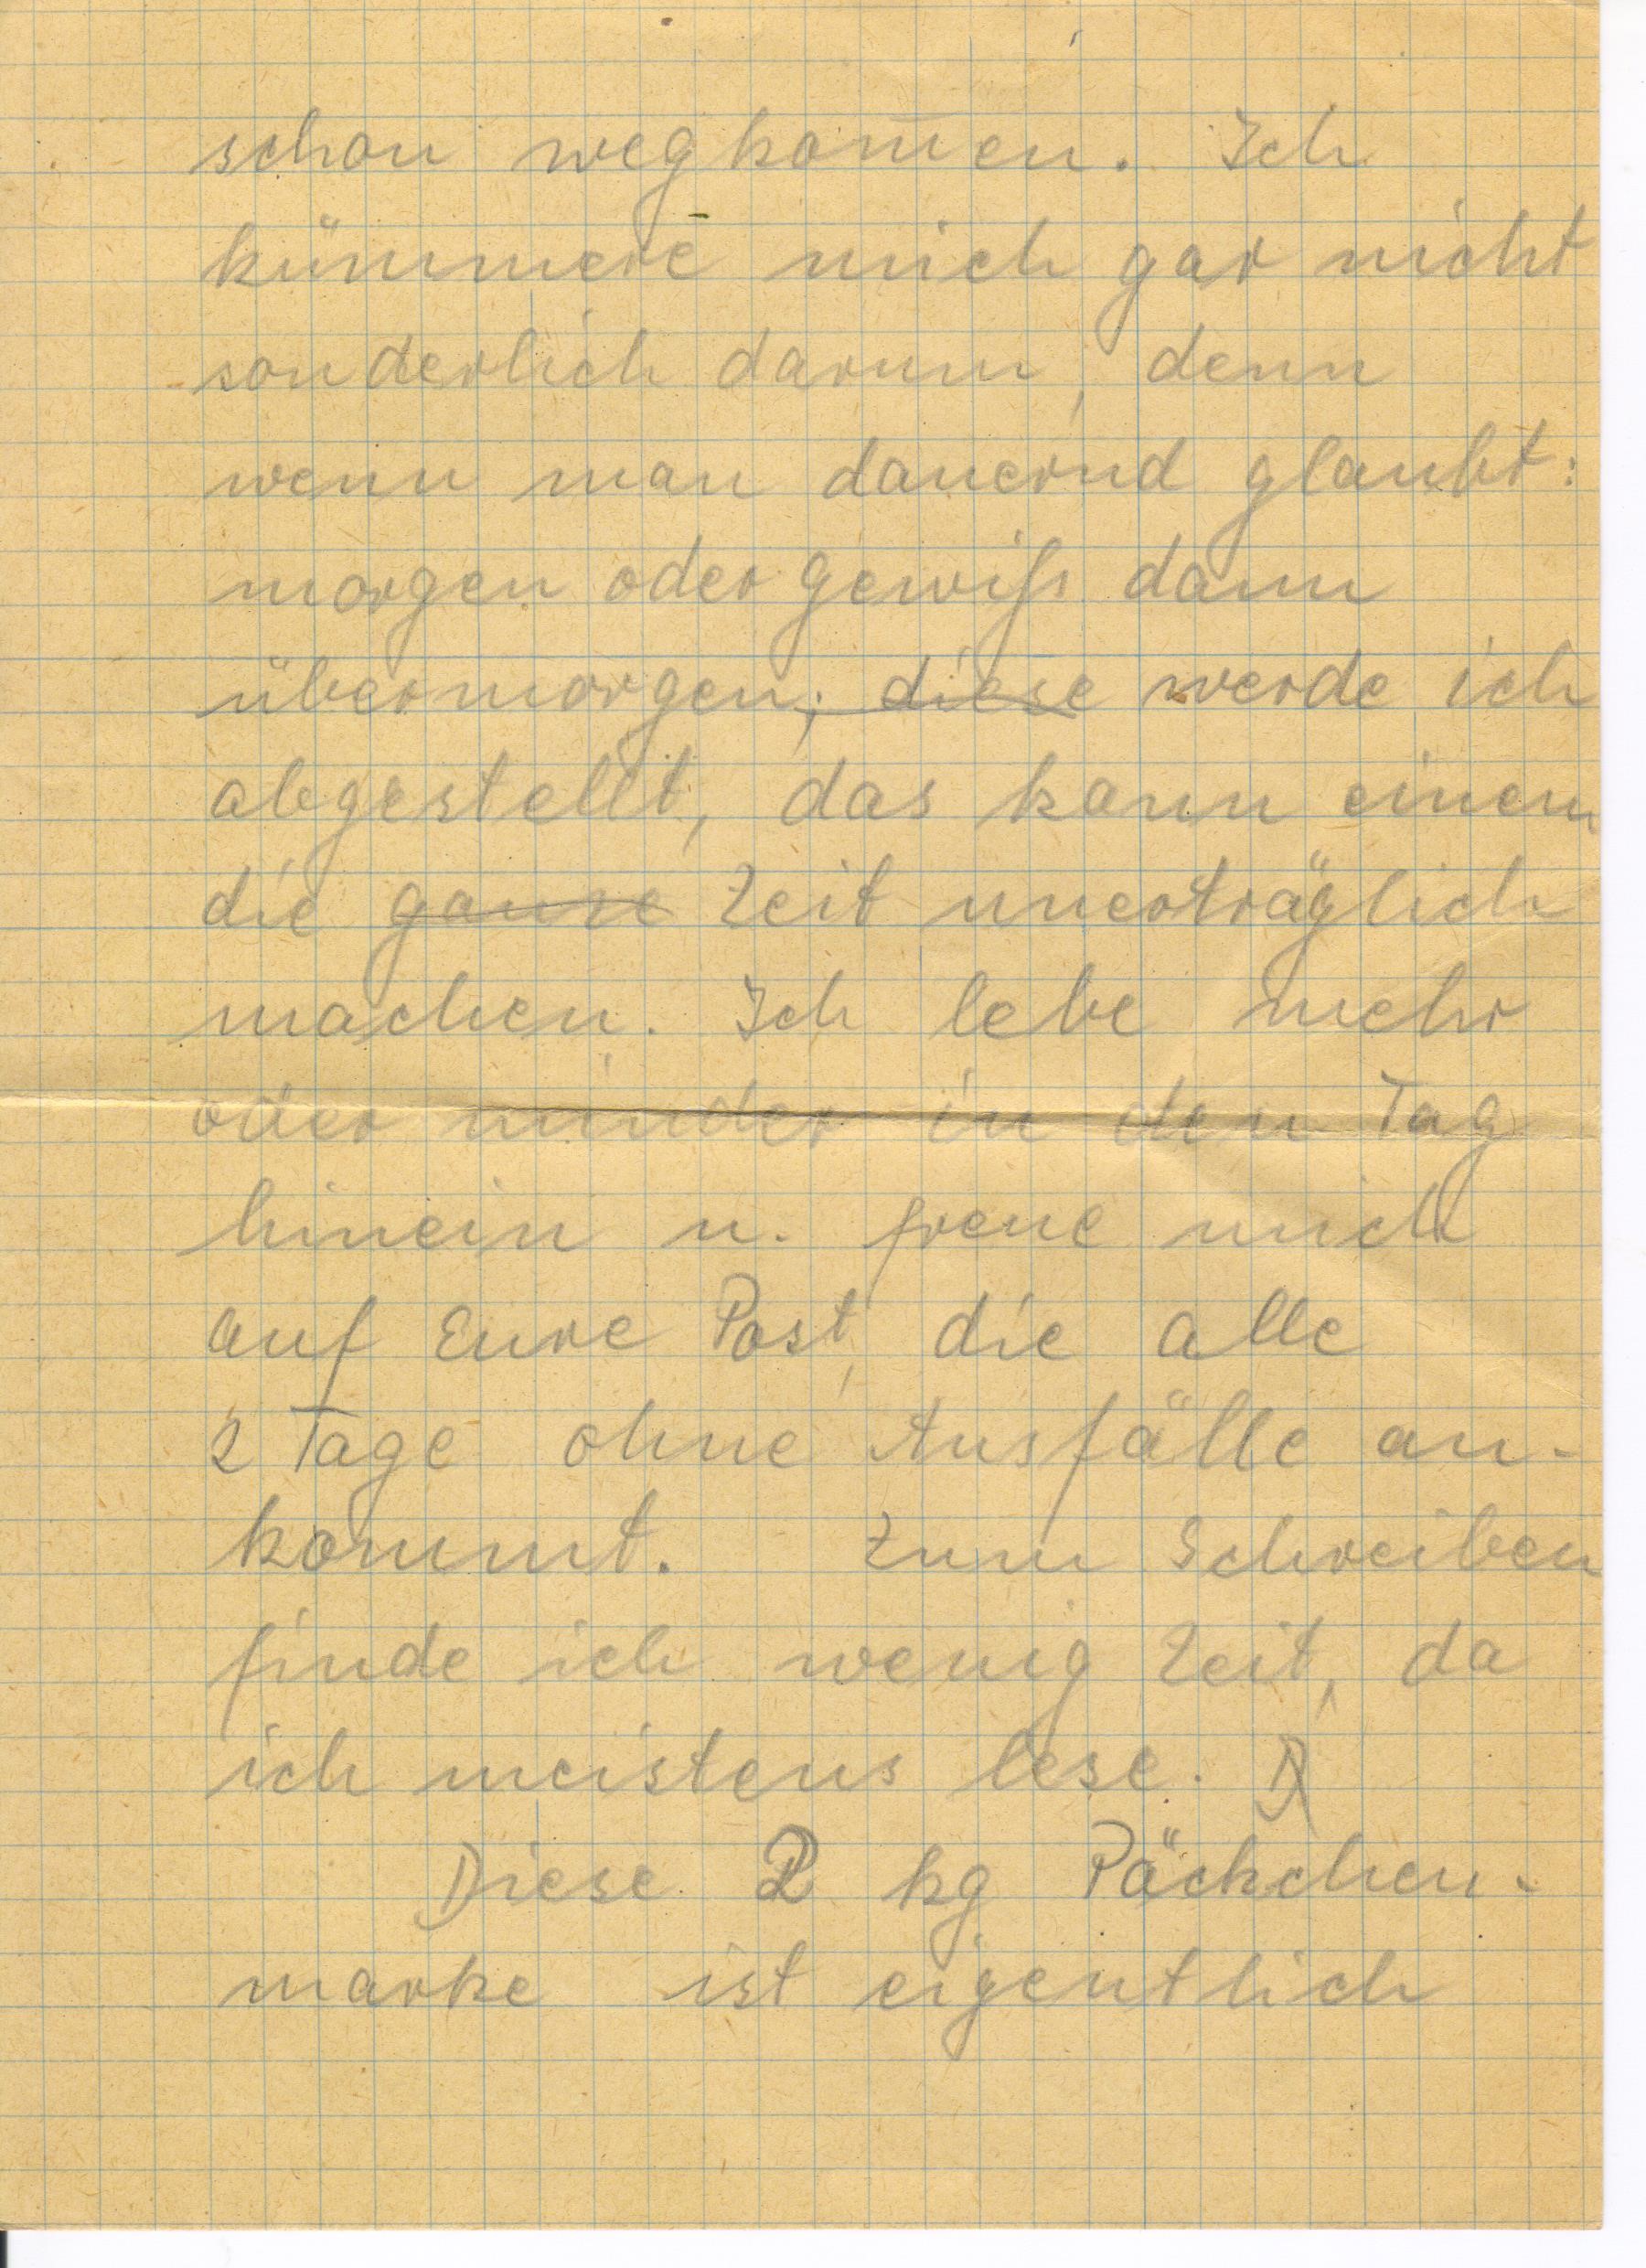 schon wegkom̅en. Ich
kümmere mich gar nicht
sonderlich darum, denn
wenn man dauernd glaubt:
morgen oder gewiß dann
übermorgen, diese werde ich
abgestellt, das kann einem
die ganze Zeit unerträglich
machen. Ich lebe mehr
oder minder in den Tag
hinein u. freue mich
auf Eure Post, die alle
2 Tage ohne Ausfälle an-
kommt. Zum Schreiben
finde ich wenig Zeit, da
ich meistens lese. D
Diese 2 kg Päckchen-
marke ist eigentlich